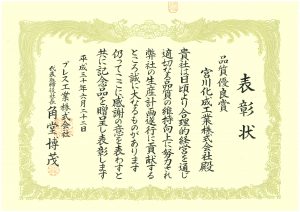 表彰状
品質優良賞
宮川化成工業株式会社殿
貴社は日頃より合理的経営を通じ
適切なる品質の維持向上に努力され
弊社の生産計画遂行に貢献する
ところ誠に大なるものがあります
仍ってここに感謝の意を表わすと
共に記念品を贈呈し表彰します
平成三十年六月二十二日
プレス工業株式会社
代表取締役社長 角堂博茂